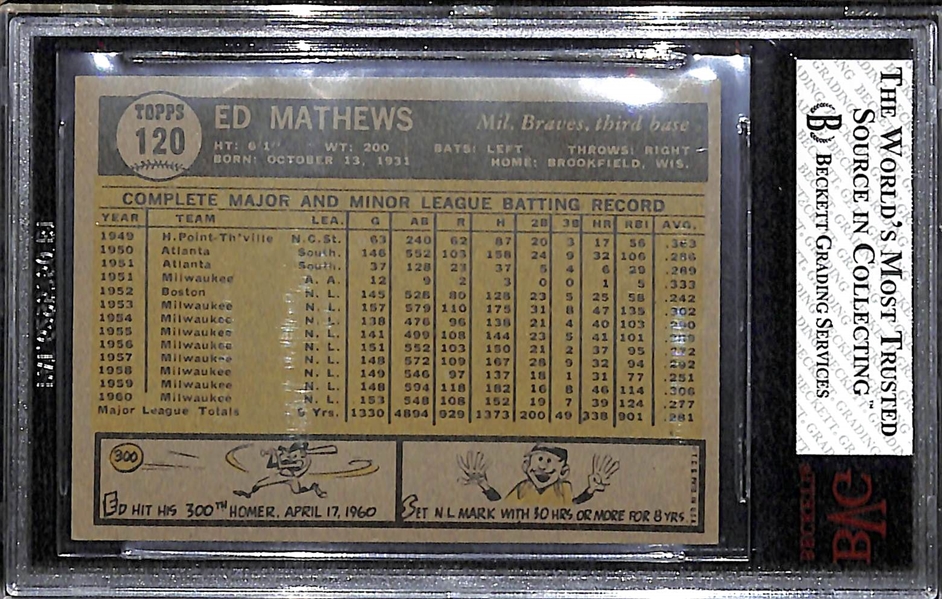 TOPPS
120
ED MATHEWS
Mil. Braves, third base
HT: 6'1" WT: 200 BATS: LEFT THROWS: RIGHT
BORN: OCTOBER 13, 1931 HOME: BROOKFIELD, WIS.
COMPLETE MAJOR AND MINOR LEAGUE BATTING RECORD
YEAR TEAM LEA. G AB R H 2B 3B HR RBI AVG.
1949 H.Point-Th'ville N.C.St. 63 240 62 87 20 3 17 56 .363
1950 Atlanta South. 146 552 103 158 24 9 32 106 .286
1951 Atlanta South. 37 128 23 37 5 4 6 29 .289
1951 Milwaukee A. A. 12 9 2 3 0 0 1 5 .333
1952 Boston N. L. 145 528 80 128 23 5 25 58 .242
1953 Milwaukee N. L. 157 579 110 175 31 8 47 135 .302
1954 Milwaukee N. L. 138 476 96 138 21 4 40 103 .290
1955 Milwaukee N. L. 141 499 108 144 23 5 41 101
1956 Milwaukee N. L. 151 552 103 150 21 2 37 95
1957 Milwaukee N. L. 148 572 109 167 28 9 32 94 .292
1958 Milwaukee N. L. 149 546 97 137 18 1 31 77 .251
1959 Milwaukee N. L. 148 594 118 182 16 8 46 114 .306
1960 Milwaukee N. L. 153 548 108 152 19 7 39 124 .277
Major League Totals 9 Yrs. 1330 4894 929 1373 200 49 338 901 .281
300
ED HIT HIS 300TH HOMER, APRIL 17, 1960
SET N L MARK WITH 30 HRS OR MORE FOR 8 YRS.
THE WORLD'S MOST TRUSTED
SOURCE IN COLLECTING™
B BECKETT GRADING SERVICES
BECKETT
BVG